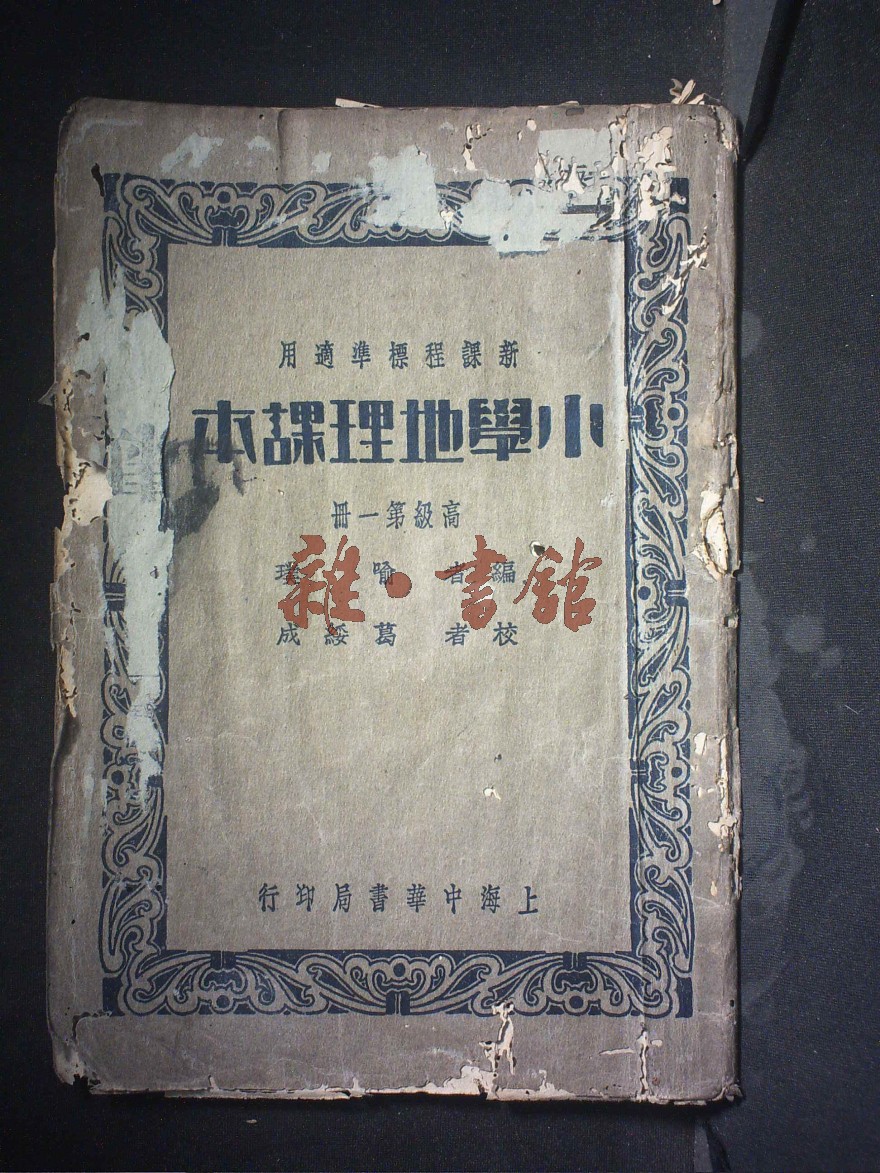 新課程標準適用
小學地理課本
高級第一冊
編者 喻璞
校者 葛綏成
上海中華書局印行
雜·書館